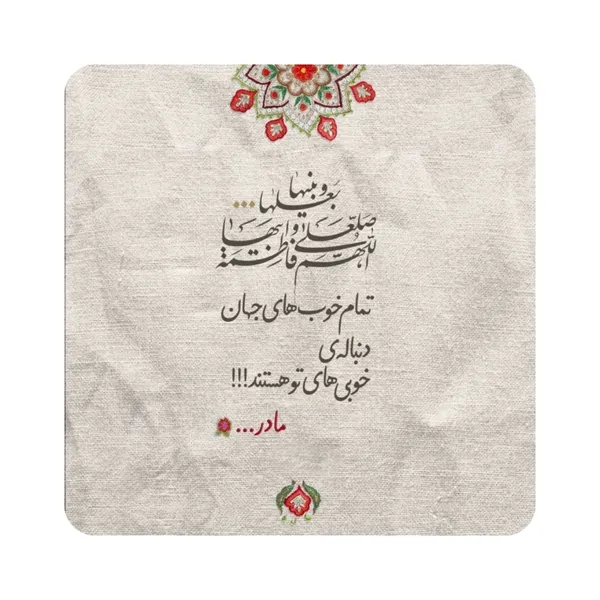 اللهم صل علی فاطمة و ابیها
و بعلها ...
و بنیها
تمام خوب های جهان
دنباله ی
خوبی های تو هستند!!!
مادر...